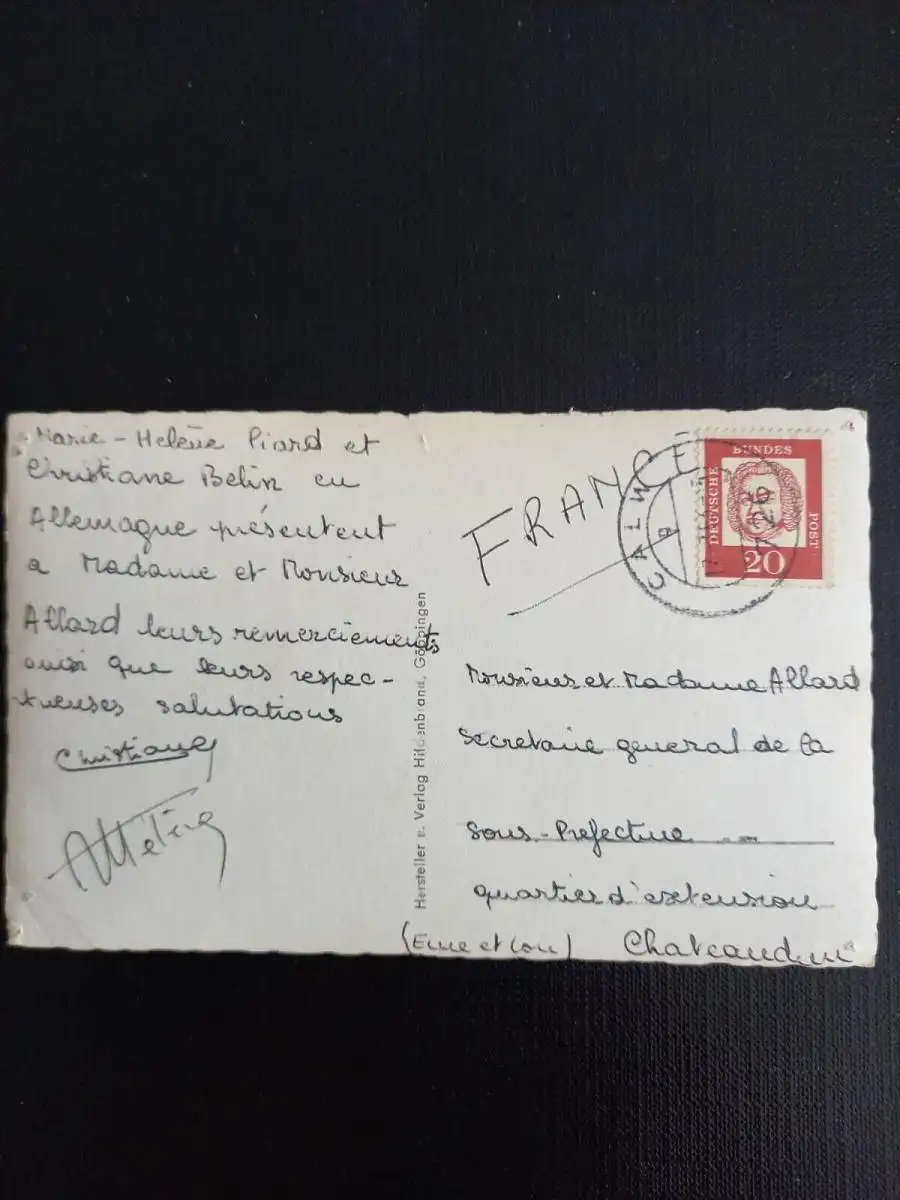 Marie-Helène Piard et
Christiane Belin en
Allemagne présentent
a Madame et Monsieur
Allard leurs remerciements
ainsi que leurs respec-
tueuses salutations
Christiane
Hersteller u. Verlag Hildenbrand, Göppingen
FRANCE
CALW
DEUTSCHE
BUNDES
POST
20
Monsieur et Madame Allard
Secretaire general de la
Sous-Prefecture
quartier d'extension
(Eure et Loir) Chateaudun